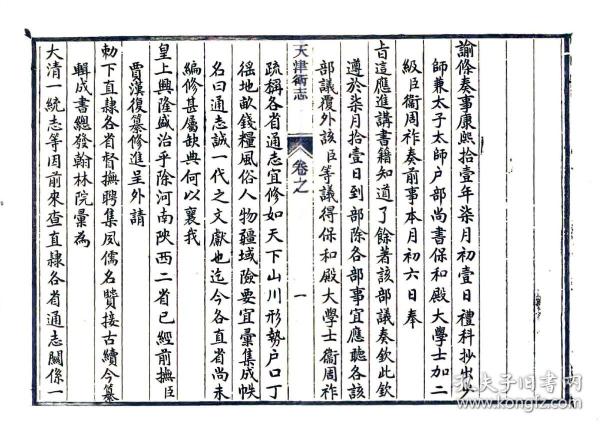 諭條奏事康熙拾壹年柒月初壹日禮科抄出少
師兼太子太師户部尚書保和殿大學士加二
級臣衞周祚奏前事本月初六日奉
㫖這應進講書籍知道了餘著該部議奏欽此欽
遵於柒月拾壹日到部除各部事宜應聽各該
部議覆外該臣等議得保和殿大學士衞周祚
天津衛志
卷之
一
疏稱各省通志宜修如天下山川形勢户口丁
徭地畝錢糧風俗人物疆域險要宜彙集成帙
名曰通志誠一代之文獻也迄今各直省尚未
編修甚属缺典何以襄我
皇上興隆盛治乎除河南陜西二省已經前撫臣
賈漢復纂修進呈外請
勅下直隷各省督撫聘集夙儒名贒接古續今纂
輯成書總發翰林院彙為
大清一統志等因前來查直隷各省通志關係一
孔夫子旧书网
www.kongfz.com